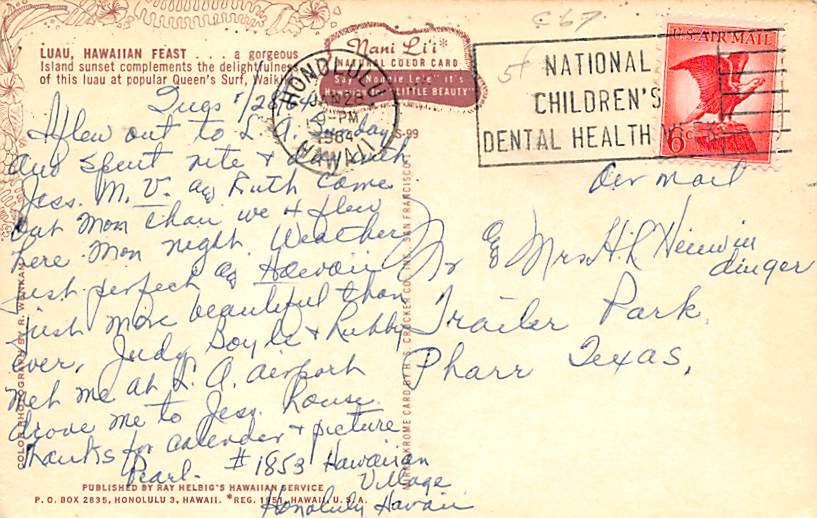 LUAU, HAWAIIAN FEAST . . . a gorgeous
Island sunset complements the delightfulness
of this luau at popular Queen's Surf, Waikiki
Nani Li'i*
NATURAL COLOR CARD
Say "Nonnie Lee's" it's
LITTLE BEAUTY"
HONOLULU
JAN 28
9-PM
1964
HAWAII
NATIONAL
CHILDREN'S
DENTAL HEALTH
U.S. AIR MAIL
6c
C67
Tues 1/28/64
I flew out to L.A. Sunday
and spent nite & day with
Jess. M.V. and Ruth came
out Mon then we & flew
here Mon night. Weather
just perfect and Hawaii
just more beautiful than
ever, Judy Boyls & hubby
met me at L.A. airport
drove me to Jess. house.
Thanks for calender & picture
Pearl - #1853 Hawaiian
Village
Honolulu, Hawaii
Air mail
Mr & Mrs H L
dinger
Trailer Park
Pharr Texas,
S-99
MIRRO-KROME CARD BY H.S. CROCKER CO., INC. SAN FRANCISCO 1
COLOR PHOTOGRAPH BY R. WENKAM
PUBLISHED BY RAY HELBIG'S HAWAIIAN SERVICE
P. O. BOX 2835, HONOLULU 3, HAWAII. *REG. 1951, HAWAII, U. S. A.